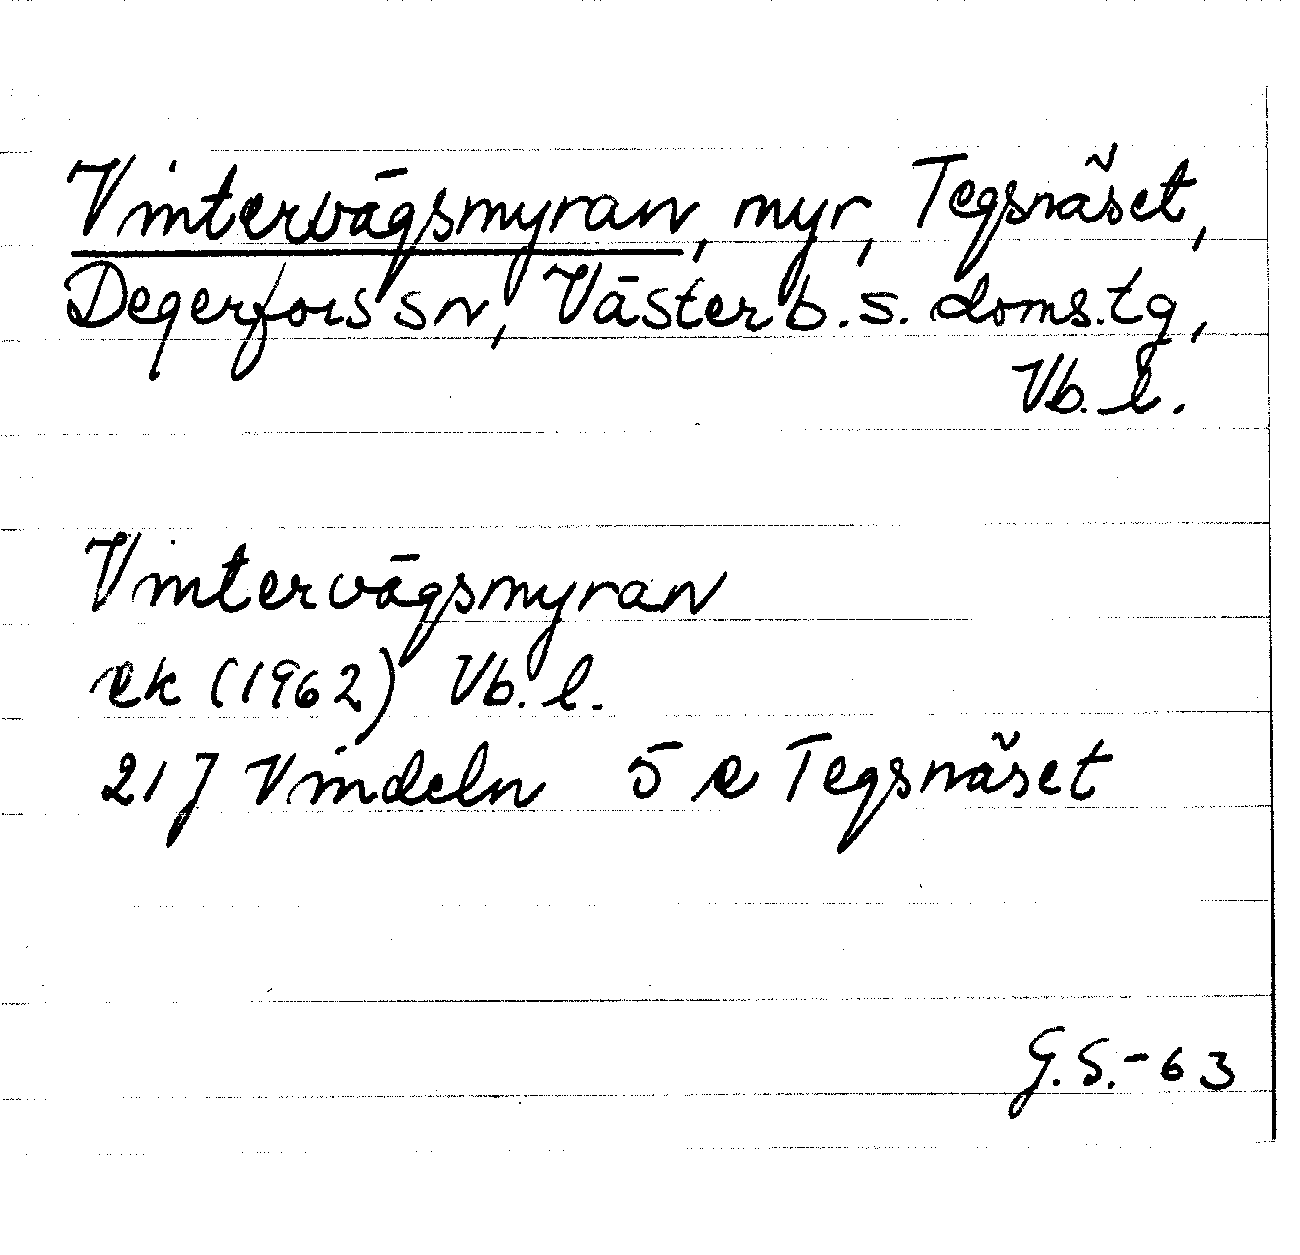 Vintervägsmyran, myr, Tegsnäset,
Degerfors sn, Västerb. s. doms.tg,
Vb. l.
Vintervägsmyran
ek (1962) Vb. l.
21 J Vindeln 5 e Tegsnäset
G. S. - 63